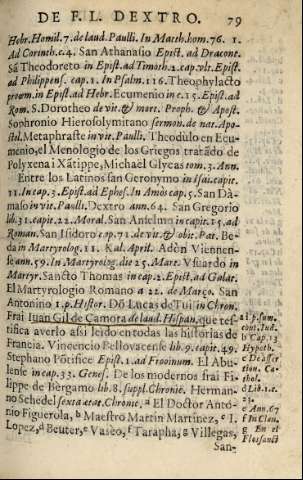 DE F. L. DEXTRO. 79
Hebr. Homil. 7. de laud. Paulli. In Matth. hom. 76. 1.
Ad Corinth. c. 4. San Athanasio Epist. ad Dracont.
Sā Theodoreto in Epist. ad Timoth. 2. cap. vlt. Epist.
ad Philippens. cap. 1. In Psalm. 116. Theophylacto
proœm. in Epist. ad Hebr. Ecumenio in c. 15. Epist. ad
Rom. S. Dorotheo de vit. & mort. Proph. & Apost.
Sophronio Hierosolymitano sermon. de nat. Apo-
stol. Metaphraste in vit. Paulli. Theodulo en Ecu-
menio, el Menologio de los Griegos tratādo de
Polyxena i Xātippe, Michael Glycas tom. 3. Ann.
Entre los Latinos san Geronymo in Isai. capit.
11. In cap. 3. Epist. ad Ephes. In Amos cap. 5. San Dā-
maso in vit. Paulli. Dextro ann. 64. San Gregorio
lib. 31. capit. 22. Moral. San Anselmo in capit. 15. ad
Roman. San Isidoro cap. 71. de vit. & obit. Pat. Be-
da in Martyrolog. 11. Kal. April. Adòn Viennen-
se ann. 59. In Martyrolog. die 25. Mart. Vsuardo in
Martyr. Sancto Thomas in cap. 2. Epist. ad Galat.
El Martyrologio Romano a 22. de Março. San
Antonino 1. p. Histor. Dō Lucas de Tui in Chron.
Frai Iuan Gil de Çamora de laud. Hispan. que tes-
tifica averlo assi leido en todas las historias de
Francia. Vincencio Bellovacense lib. 9. capit. 49.
Stephano Pōtifice Epist. 1. ad Frooinum. El Abu-
lense in cap. 33. Genes. De los modernos frai Fi-
lippe de Bergamo lib. 8. suppl. Chronic. Herman-
no Schedel sexta etat. Chronic. a El Doctor Anto-
nio Figuerola, b Maestro Martin Martinez, c I.
Lopez, d Beuter, e Vaseo, f Tarapha, g Villegas,
San-
a 1. p. sum.
b Cap. 13
Hypoth.
thol.
d Lib. 1. c.
23.
e Ann. 67
f In Clau.
g En el
Flossanct